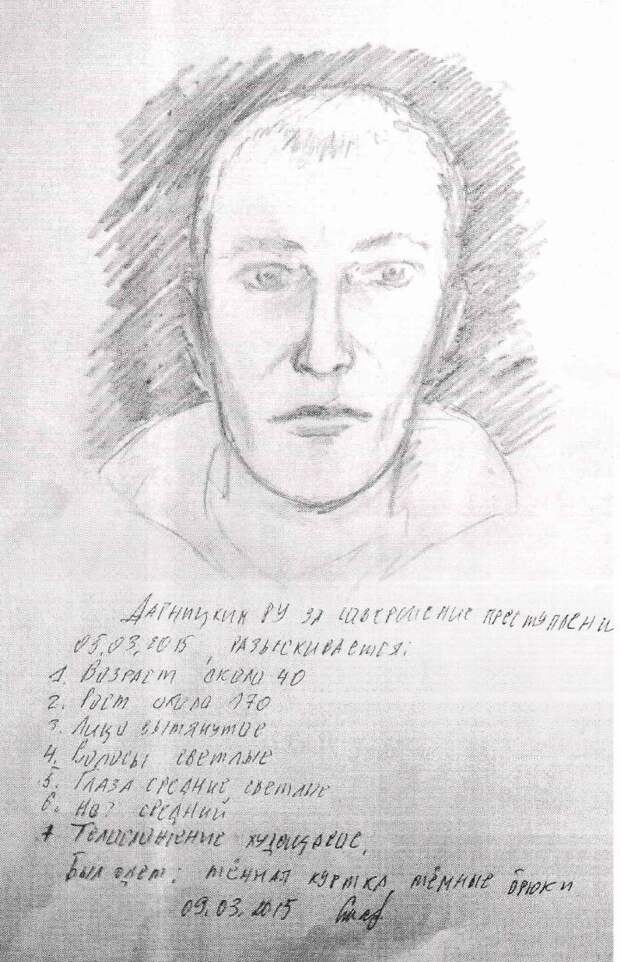 Дарницким РУ за совершение преступлени
05.03.2015, разыскивается:
1. Возраст около 40
2. Рост около 170
3. Лицо вытянутое
4. Волосы светлые
5. Глаза средние светлые
6. Нос средний
7 Телосложение худощавое.
Был одет: тёмная куртка, тёмные брюки
09.03.2015